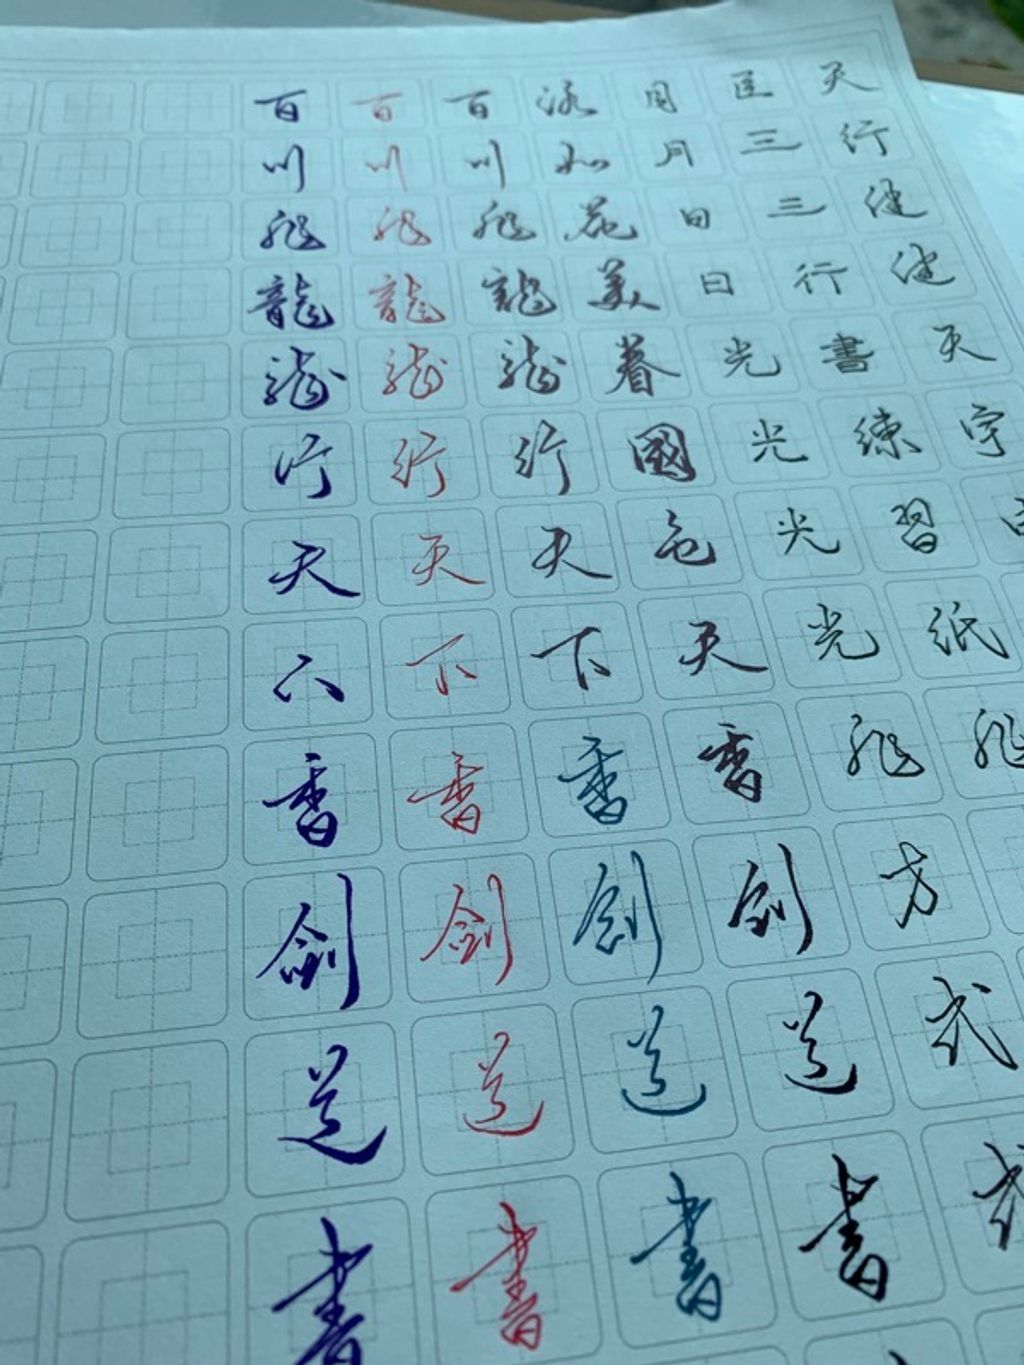 天行健健天字
三三行書練習紙飛
月日日光光光光飛方式
如花美眷國色天香劍道書
百川飛龍龍行天下香劍道書
百川飛龍龍行天下香劍道書
百川飛龍龍行天下香劍道書